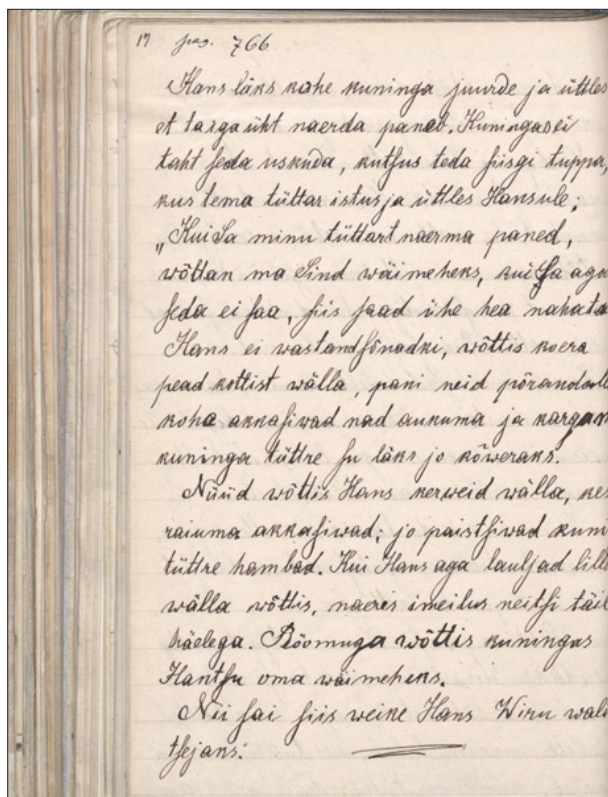 17 pag. 766
Hans läks kohe kuninga juurde ja üttles
et targa üht naerda paneb. Kuningas ei
taht seda uskuda, kutsus teda siisgi tuppa,
kus tema tüttar istus ja üttles Hansule;
„Kui Sa minu tüttart naerma paned,
wõttan ma Sind wäimeheks, kui Sa aga
seda ei saa, siis saad ühe hea nahata
Hans ei wastand sõnadki, wõttis koera
pead kottist wälla, pani neid põrandalle
koha akkasiwad nad aukuma ja kargam
kuninga tüttre su läks jo kõweraks.
Nüüd wõttis Hans kerweid wälla, kes
raiuma akkasiwad; jo paistsiwad kuni
tüttre hambad. Kui Hans aga lauljad lille
wälla wõttis, naeris imeilus neitsi täie
häelega. Rõõmuga wõttis kuningas
Hantsu oma wäimeheks.
Nii sai siis weike Hans Wiru wali
tsejans.